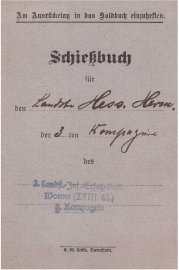 Am Ausrücketag in das Soldbuch einzuheften.
Schießbuch
für
den Landstm Hess. Herm.
der 3 ten Kompagnie
des
2. Landst.-Inf.-Ersatz-Batl.
Worms (XVIII. 48.)
3. Kompagnie